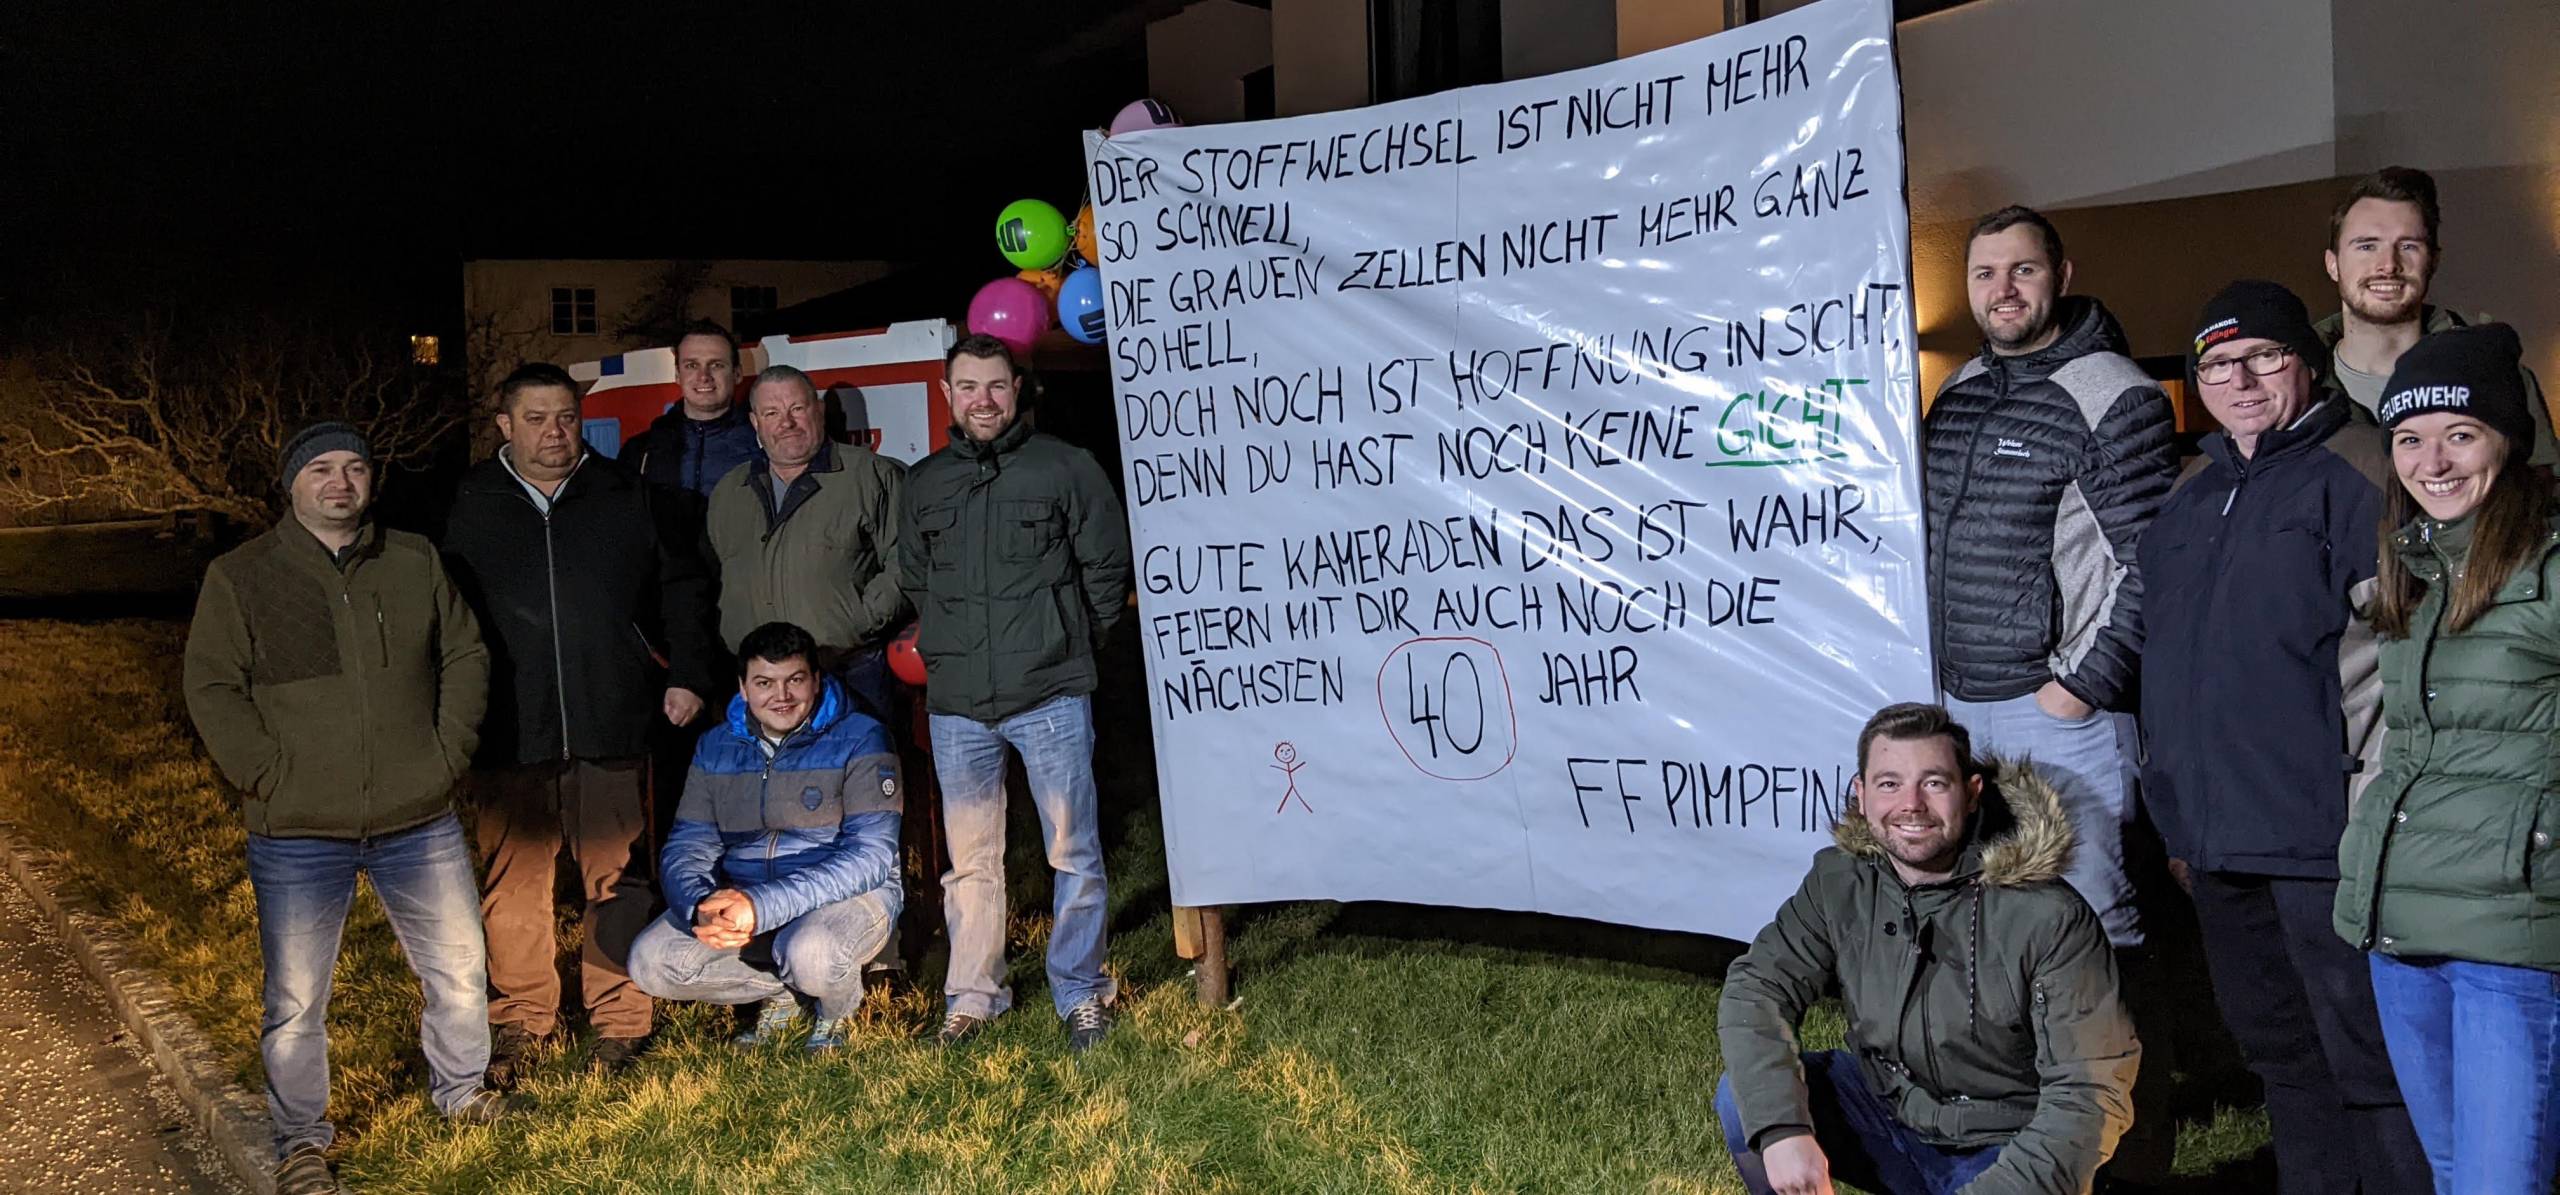 DER STOFFWECHSEL IST NICHT MEHR
SO SCHNELL,
DIE GRAUEN ZELLEN NICHT MEHR GANZ
SO HELL,
DOCH NOCH IST HOFFNUNG IN SICHT,
DENN DU HAST NOCH KEINE GICHT.
GUTE KAMERADEN DAS IST WAHR,
FEIERN MIT DIR AUCH NOCH DIE
NÄCHSTEN 40 JAHR
FF PIMPFIN
FEUERWEHR